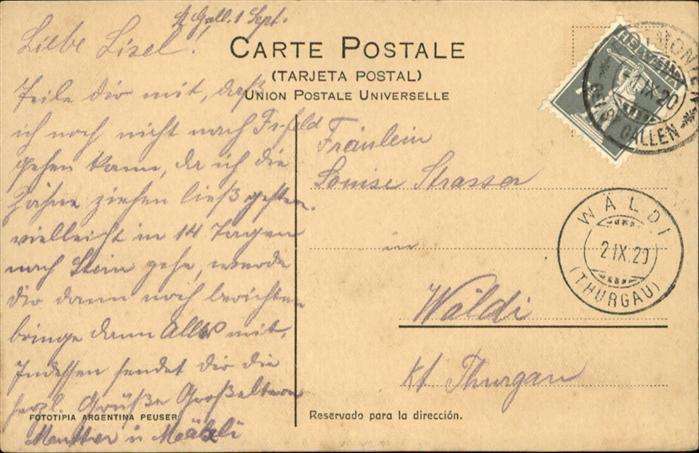 St. Gall. 1 Sept.
Liebe Lisel.
Teile dir mit, daß
ich noch nicht nach Frfeld
gehen kann, da ich die
Zähne ziehen ließ gestern.
vielleicht in 14 Tagen
nach Stein gehe, werde
dir dann noch berichten
bringe dann Alles mit.
Indessen sendet dir die
herzl. Grüße Großeltern
Mutter u
CARTE POSTALE
(TARJETA POSTAL)
UNION POSTALE UNIVERSELLE
Fräulein
Louise Strasser
in
Wäldi
Kt Thurgau
HELVETIA
1.IX.20
GALLEN
WÄLDI
2.IX.20
(THURGAU)
FOTOTIPIA ARGENTINA PEUSER
Reservado para la dirección.